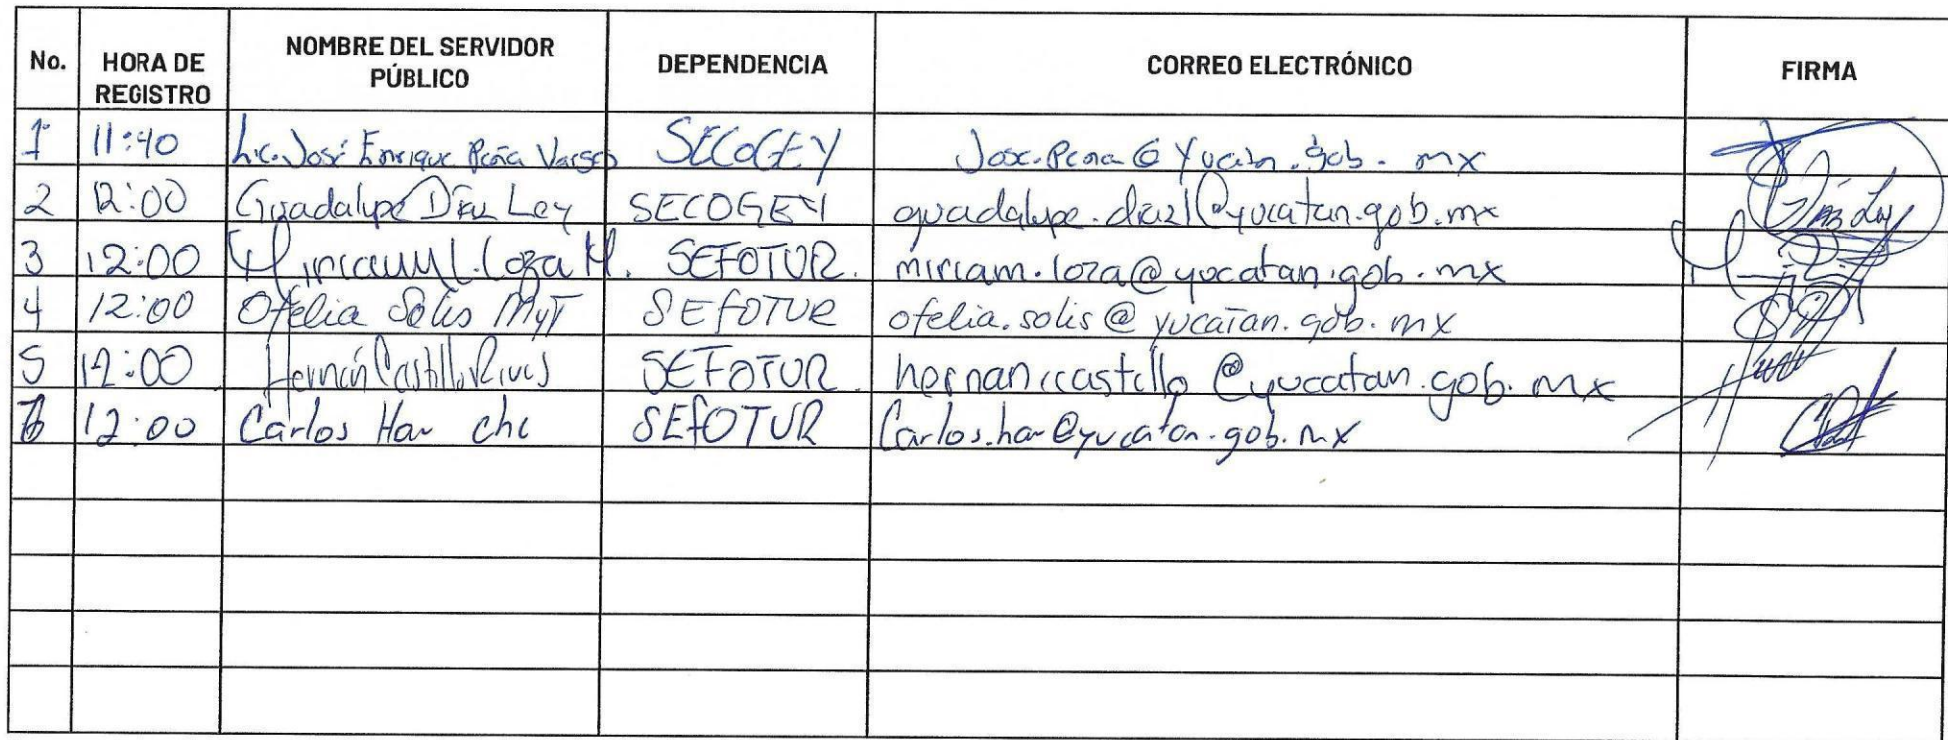 No. HORA DE REGISTRO NOMBRE DEL SERVIDOR PÚBLICO DEPENDENCIA CORREO ELECTRÓNICO FIRMA
1 11:40 Lic. José Enrique Peña SECOGEY Jose.Pena@Yucatan.gob.mx
2 12:00 Guadalupe Díaz Ley SECOGEY guadalupe.diazl@yucatan.gob.mx
3 12:00 Miriam L. Loza M. SEFOTUR. miriam.loza@yucatan.gob.mx
4 12:00 Ofelia Solis MyT SEFOTUR ofelia.solis@yucatan.gob.mx
5 12:00 Hernán Castillo Rivas SEFOTUR @yucatan.gob.mx
6 12:00 Carlos Hau Che SEFOTUR Carlos.hau@yucatan.gob.mx